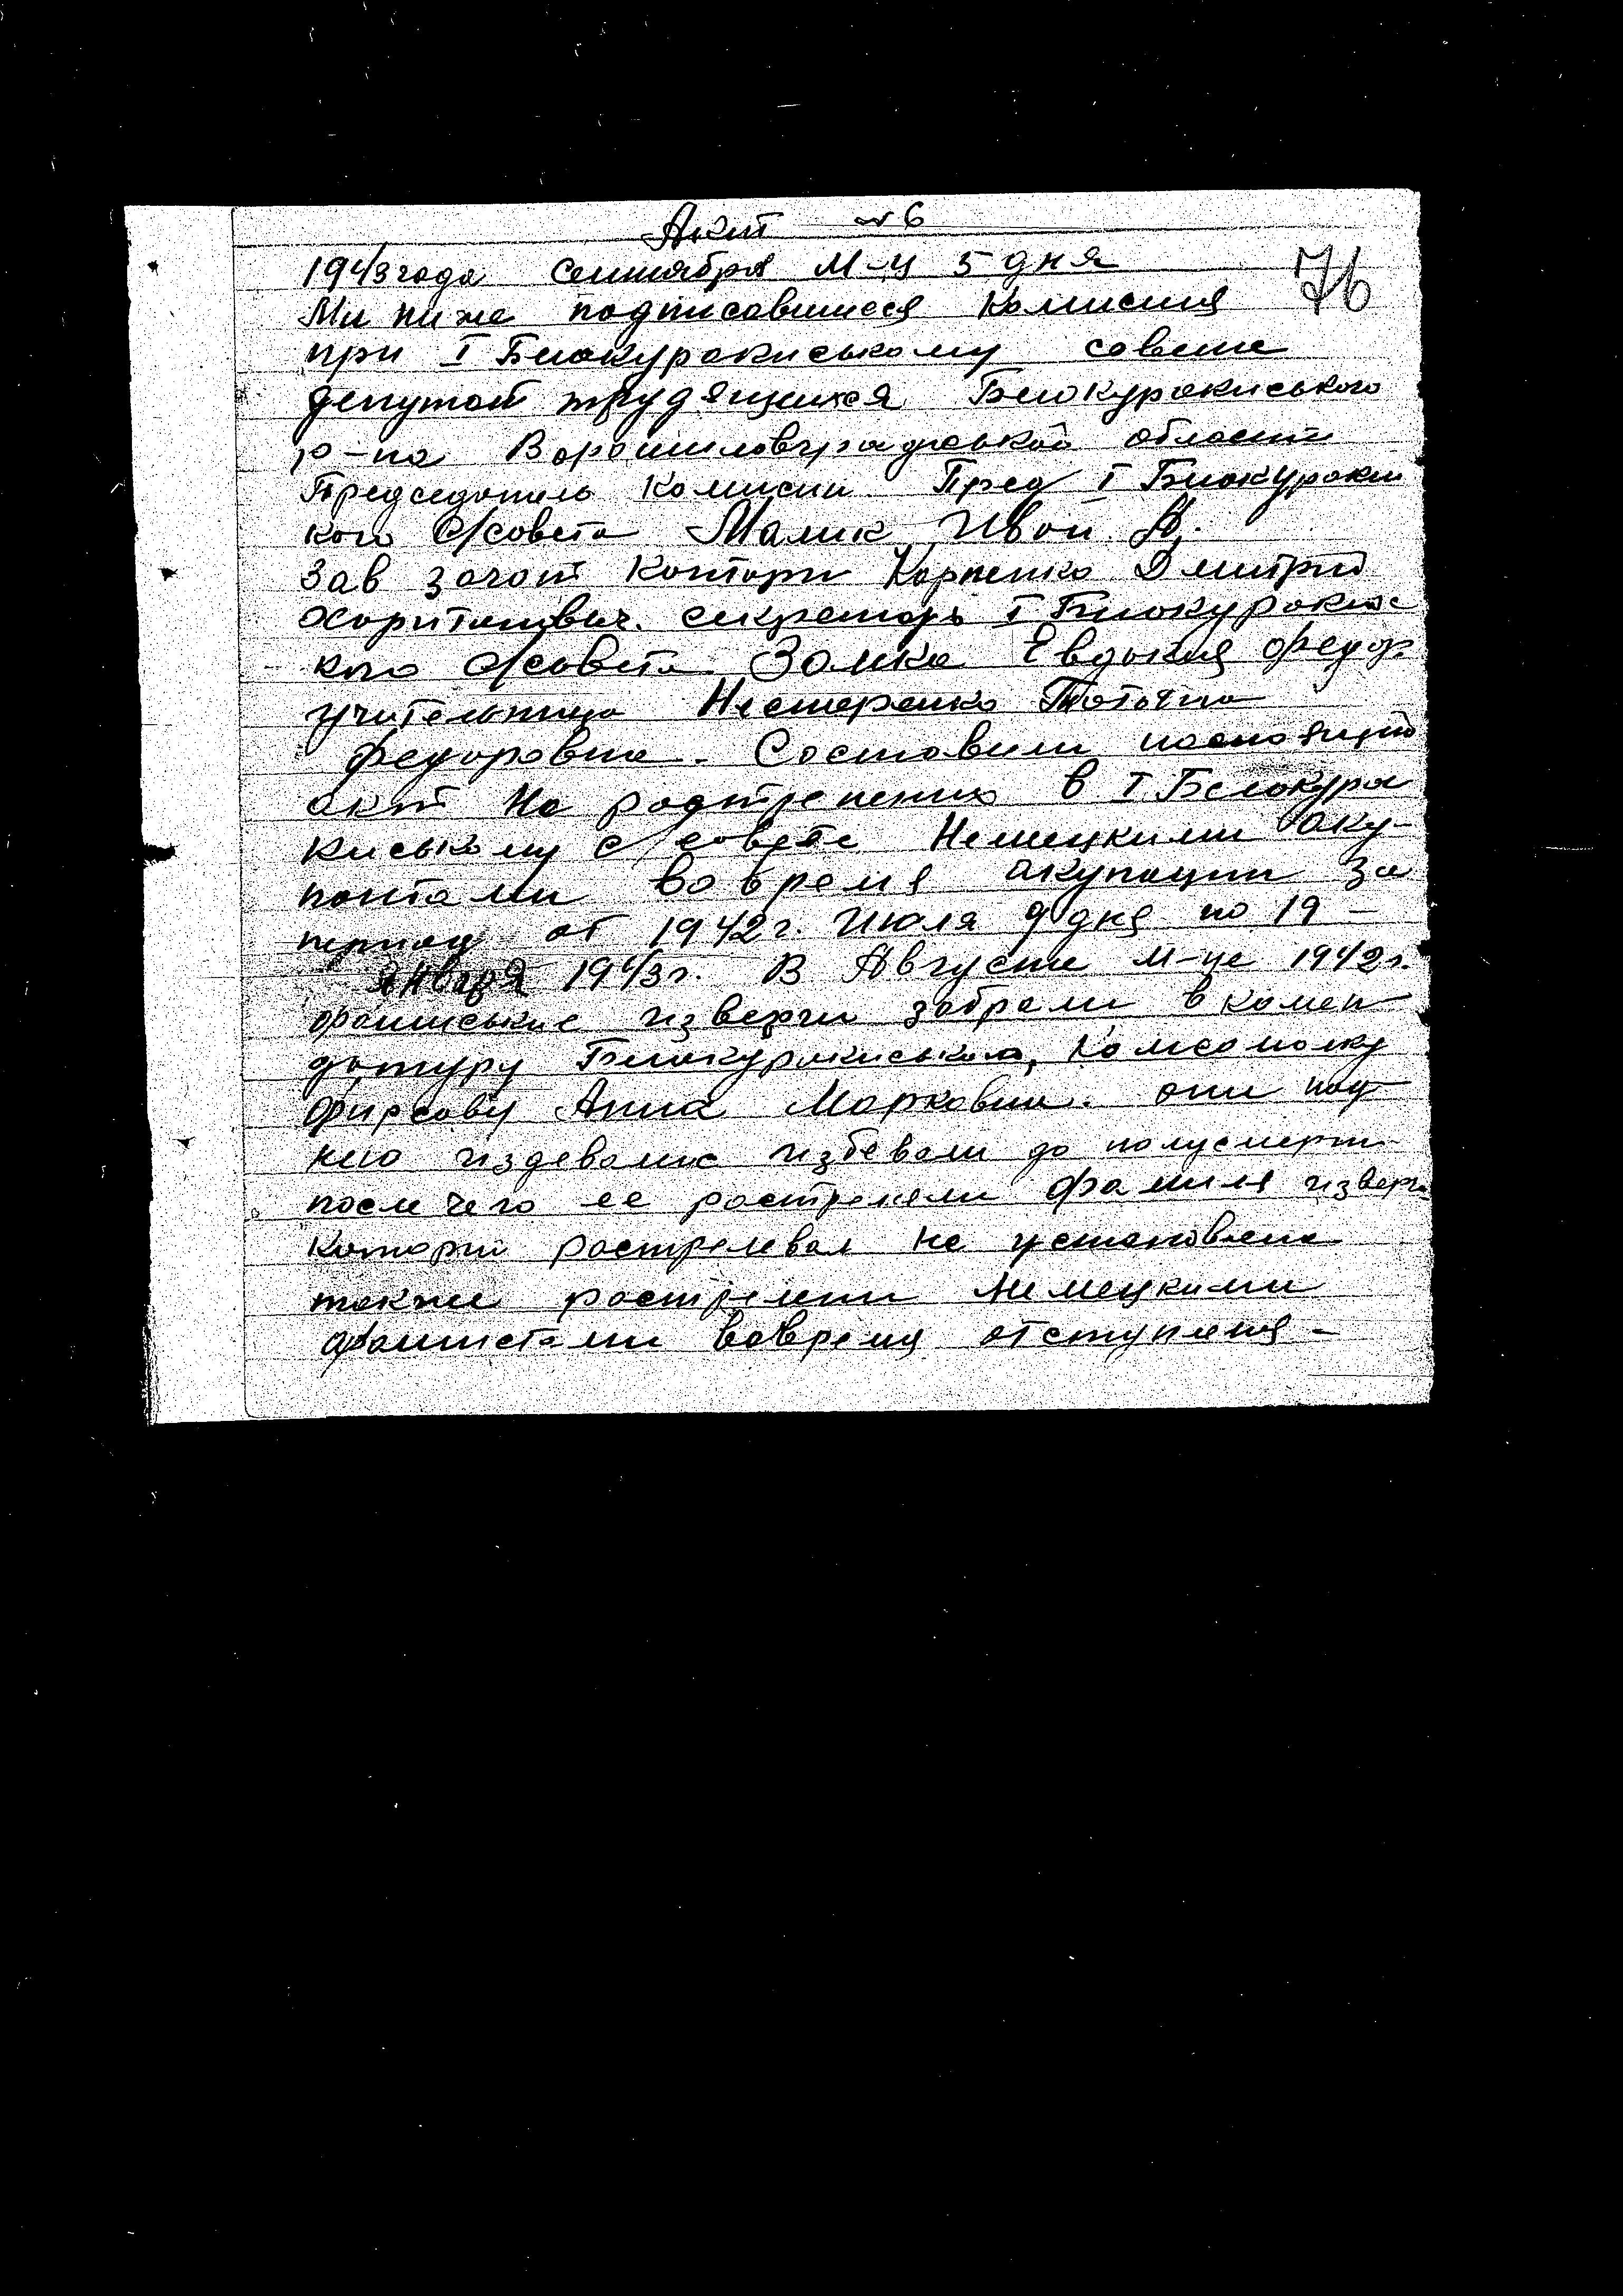 Акт №6
76
1943 года сентября м-ц 5 дня
Ми ниже подписавшиеся комисия
при I Билокуракиському совете
депутат трудящихся Билокуракиського
р-на Ворошиловградськой области
Председатель комисии Пред I Билокураки
кого с/совета Малик Иван А.
Зав загот конторы Карпенко Дмитрий
Харитонович. секретарь I Билокуракис
кого с/совета Замка Евдокия Федор.
учительница Нестеренко Татяна
Федоровна. Составили настоящий
акт на в I Белокура
киському с/совете Немецкими оку-
пантами вовремя окупации за
период от 1942 г. Июля 9 дня по 19 -
Января 1943 г. В Августе м-це 1942 г.
фашиськие изверги забрали в комен
датуру Билокуракиського, комсомолку
Фирсову Анна Марковна. они над
нею издевались избевали до полусмерти
после чего ее растреляли фамиля изверга
который растрелевал не установлена
также растреляни Немецкими
фашистами вовремя отступленя -